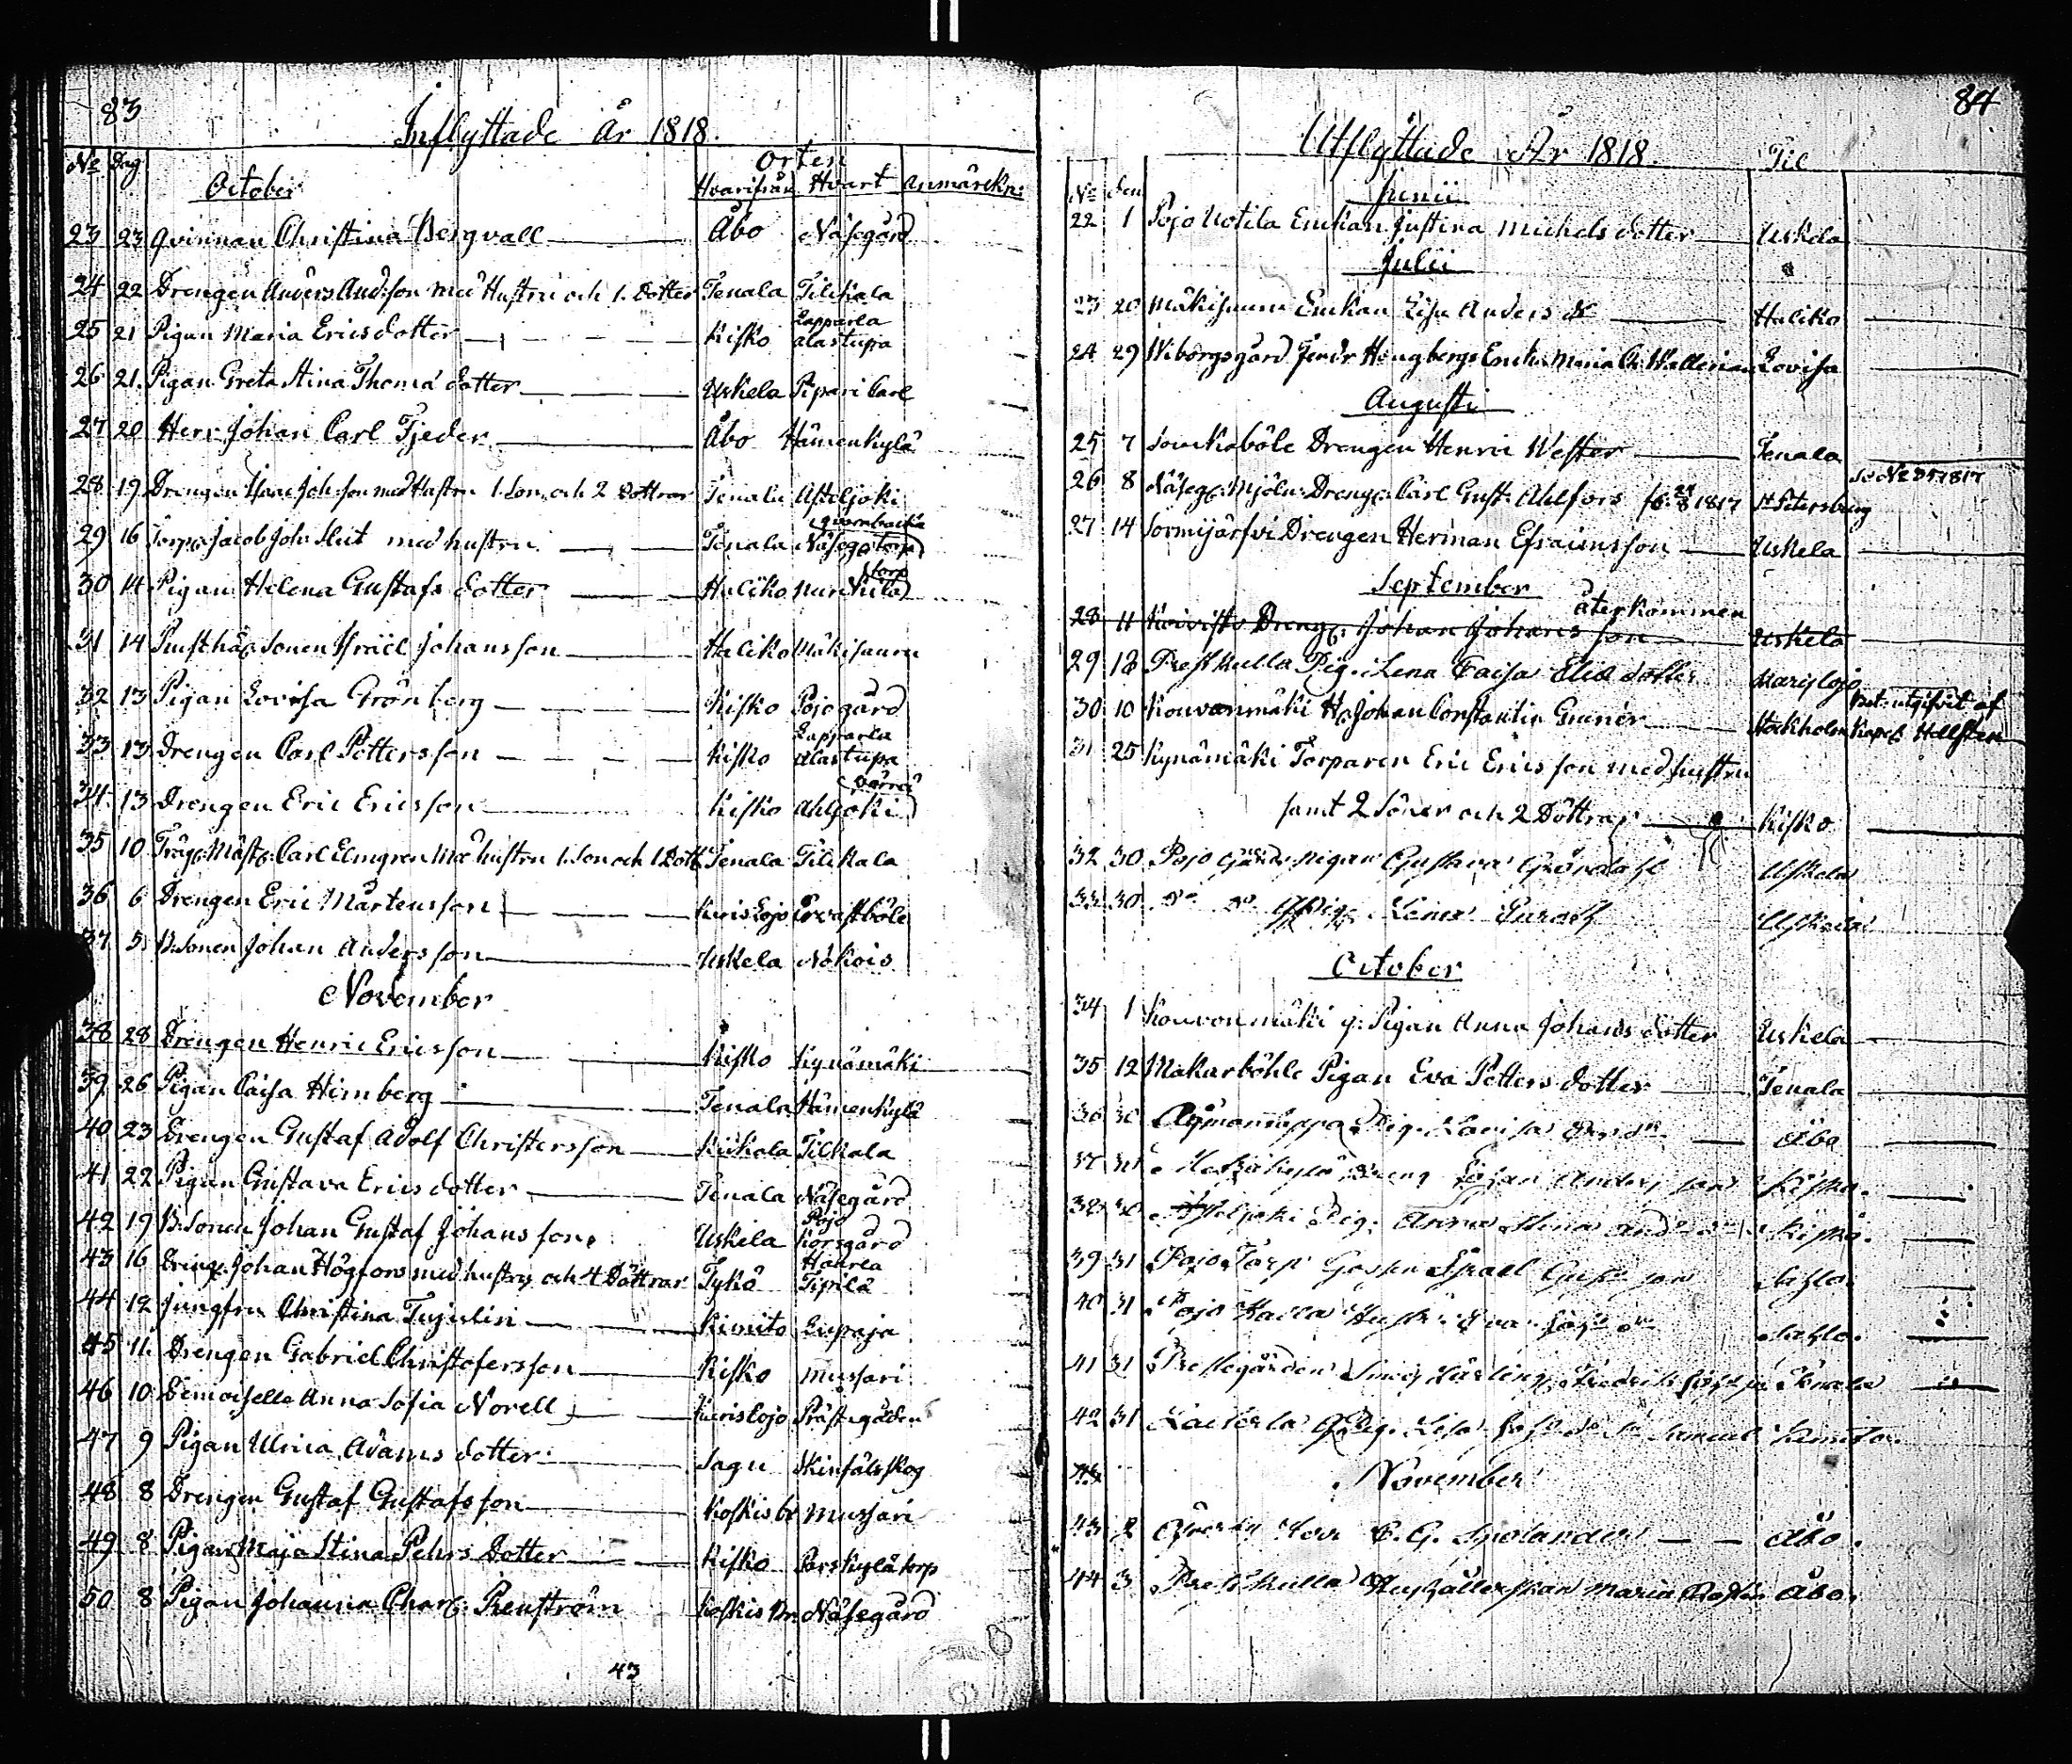 83
Inflyttade År 1818.
No Dag October Orten
Hvarifrån Hvart Anmärckn:
23 23 Qvinnan Christina Bergvall Åbo Näsegård
24 22 Drengen Anders Andsson med Hustru och 1. Dotter Tenala Tilkala
25 21 Pigan Maria Ericsdotter Kisko Lapparla alastupa
26 21. Pigan Greta Stina Thomädotter Uskela Pipari Carl
27 20 Herr Johan Carl Tjeder Åbo Hämenkylä
28 19 Drengen Isaac Joh:son med Hustru 1. Son och 2 Döttrar Tenala Asteljoki
29 16 Torp: Jacob Joh: Slut med hustru Tenala Näseg: torp
30 14 Pigan Helena Gustafsdotter Haliko Nurkila torp
31 14 Sonen Israël Johansson Haliko Mäkisauru
32 13 Pigan Lovisa Grönberg Kisko Pojogård
33 13 Drengen Carl Pettersson Kisko Lapparla alastupa
34 13 Drengen Eric Ericsson Kisko Ahljoki
35 10 Träg: Mäst: Carl Elmgren Med hustru 1. Son och 1 Dott: Tenala Tilkala
36 6 Drengen Eric Mårtensson Karislojo Ervastböle
37 5 B:Sonen Johan Andersson Uskela Nokois
November
38 28 Drengen Henric Ericsson Kisko Kynämäki
39 26 Pigan Caisa Himberg Tenala Hämenkylä
40 23 Drengen Gustaf Adolf Christersson Kiikala Tilkala
41 22 Pigan Gustava Ericsdotter Tenala Näsegård
42 19 B:Sonen Johan Gustaf Johansson Uskela Pojo Korsgård
43 16 Dreng: Johan Högfors med hustru och 4 Döttrar Tykö Haurla Tiprilä
44 12 Jungfru Christina Tujulin Kimito Lupaja
45 11. Drengen Gabriel Christofersson Kisko Mussari
46 10 Demoiselle Anna Sofia Norell Karislojo Prästegården
47 9 Pigan Ulrica Adamsdotter Sagu Skinfälsskog
48 8 Drengen Gustaf Gustafsson Koskis br Mussari
49 8 Pigan Maja Stina Pehrs Dotter Kisko Porskylä torp
50 8 Pigan Johanna Charl: Renström Koskis Br. Näsegård
43
84
Utflyttade År 1818. Til
No den Junii
22 1 Pojo Uotila Enkan Justina Michelsdotter Uskela
Julii
23 20 Mäkisauru Enkan Lisa Anders dr Haliko
24 29 Wiborgsgård Hougbergs Enka Maria Ch: Wallerian Lovisa
Augusti
25 7 Souckaböle Drengen Henric Wester Tenala
26 8 Näseg: Mjöln: Dreng: Carl Gust: Ahlfors 1817 St Petersburg se No 35 1817
27 14 Sormijärfvi Drengen Herman Efraimsson Uskela
September
återkommen
28 11 Koivisto Dreng: Johan Johansson Uskela
29 13 Prestkulla Pig: Lena Caisa Elia dotter Karislojo
30 10 Kouvonmäki H: Johan Constantin Gunér Stockholm Bet: utgifvit af Kapel: Hellsten
31 25 Kynämäki Torparen Eric Ericsson med hustru
samt 2 Söner och 2 Döttrar Kisko
32 30 Pojo Gård pigan Gustava Gröndahl Uskela
33 30 Do Do Pig: Lena Uskela
October
34 1 Kouvonmäki g: Pigan Anna Johansdotter Uskela
35 12 Makarböhle Pigan Eva Petters dotter Tenala
36 30 Pig. Lovisa Åbo
37 31 Dreng Johan Andersson Kisko.
38 30 Asteljoki Pig: Anna Stina And: dr Kisko.
39 31 Pojo Torp Gossen Israel Gust: son
40 31 Pojo Kalla Hust: Eva Joh: dr
41 31 Prestegården Smed Lärling: Fredrik Tenala
42 31 Pig: Lisa Samuel Kimito.
November
43 2 Herr C. G. Åbo.
44 3 Prestkulla Hushållerskan Maria Åbo.